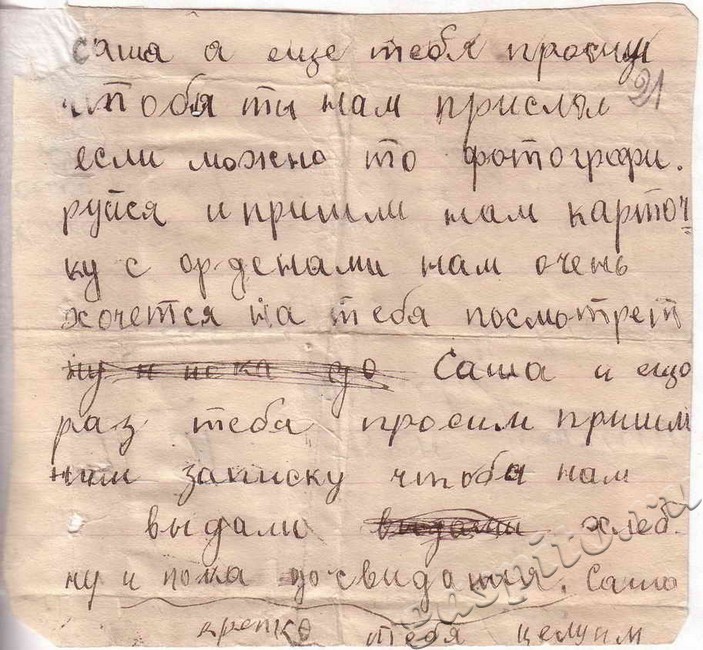 Саша я еще тебя просим
чтобы ты нам прислал 21
если можно то фотографи.
руйся и пришли нам карточ
ку с орденами нам очень
хочется на тебя посмотрет
ну и пока до Саша и ещо
раз тебя просим пришли
нам записку чтобы нам
выдали выдали хлеб.
ну и пока досвидания. Саша
крепко тебя целуим